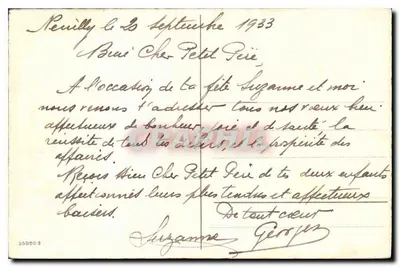 Neuilly le 20 septembre 1933
Cher Petit Père
A l'occasion de ta fête Suzanne et moi
nous venons t'adresser tous nos vœux bien
affectueux de bonheur joie et de santé la
réussite de tous tes et la prospérité des
affaires.
Reçois bien Cher Petit Père de tes deux enfants
affectionnés leurs plus tendres et affectueux
baisers.
De tout cœur
Suzanne Georges